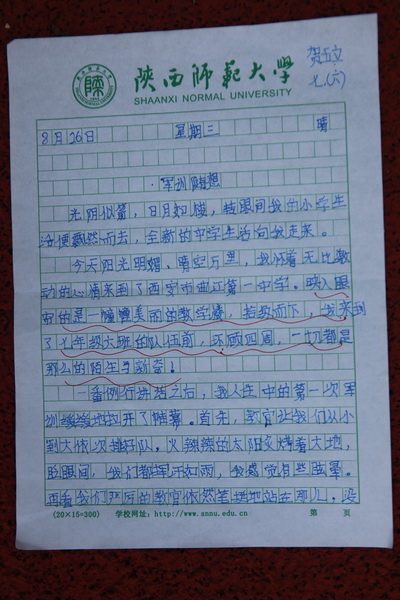 陕西师范大学
SHAANXI NORMAL UNIVERSITY
贺五文
七.(六)
8月26日 星期三 晴
·军训随想
光阴似箭，日月如梭，转眼间我的小学生
活便飘然而去，全新的中学生活向我走来。
今天阳光明媚、晴空万里，我怀着无比激
动的心情来到了西安市曲江第一中学。映入眼
中的是一幢幢美丽的教学楼，拾级而下，我来到
了七年级六班的队伍前，环顾四周，一切都是
那么的陌生与新奇！
一番例行讲话之后，我人生中的第一次军
训缓缓地拉开了帷幕。首先，教官让我们从小
到大依次排好队，火辣辣的太阳炙烤着大地，
眨眼间，我们都挥汗如雨，我感觉有些眩晕。
再看我们严厉的教官依然笔挺地站在那儿，没
(20×15=300) 学校网址：http://www.snnu.edu.cn 第 页